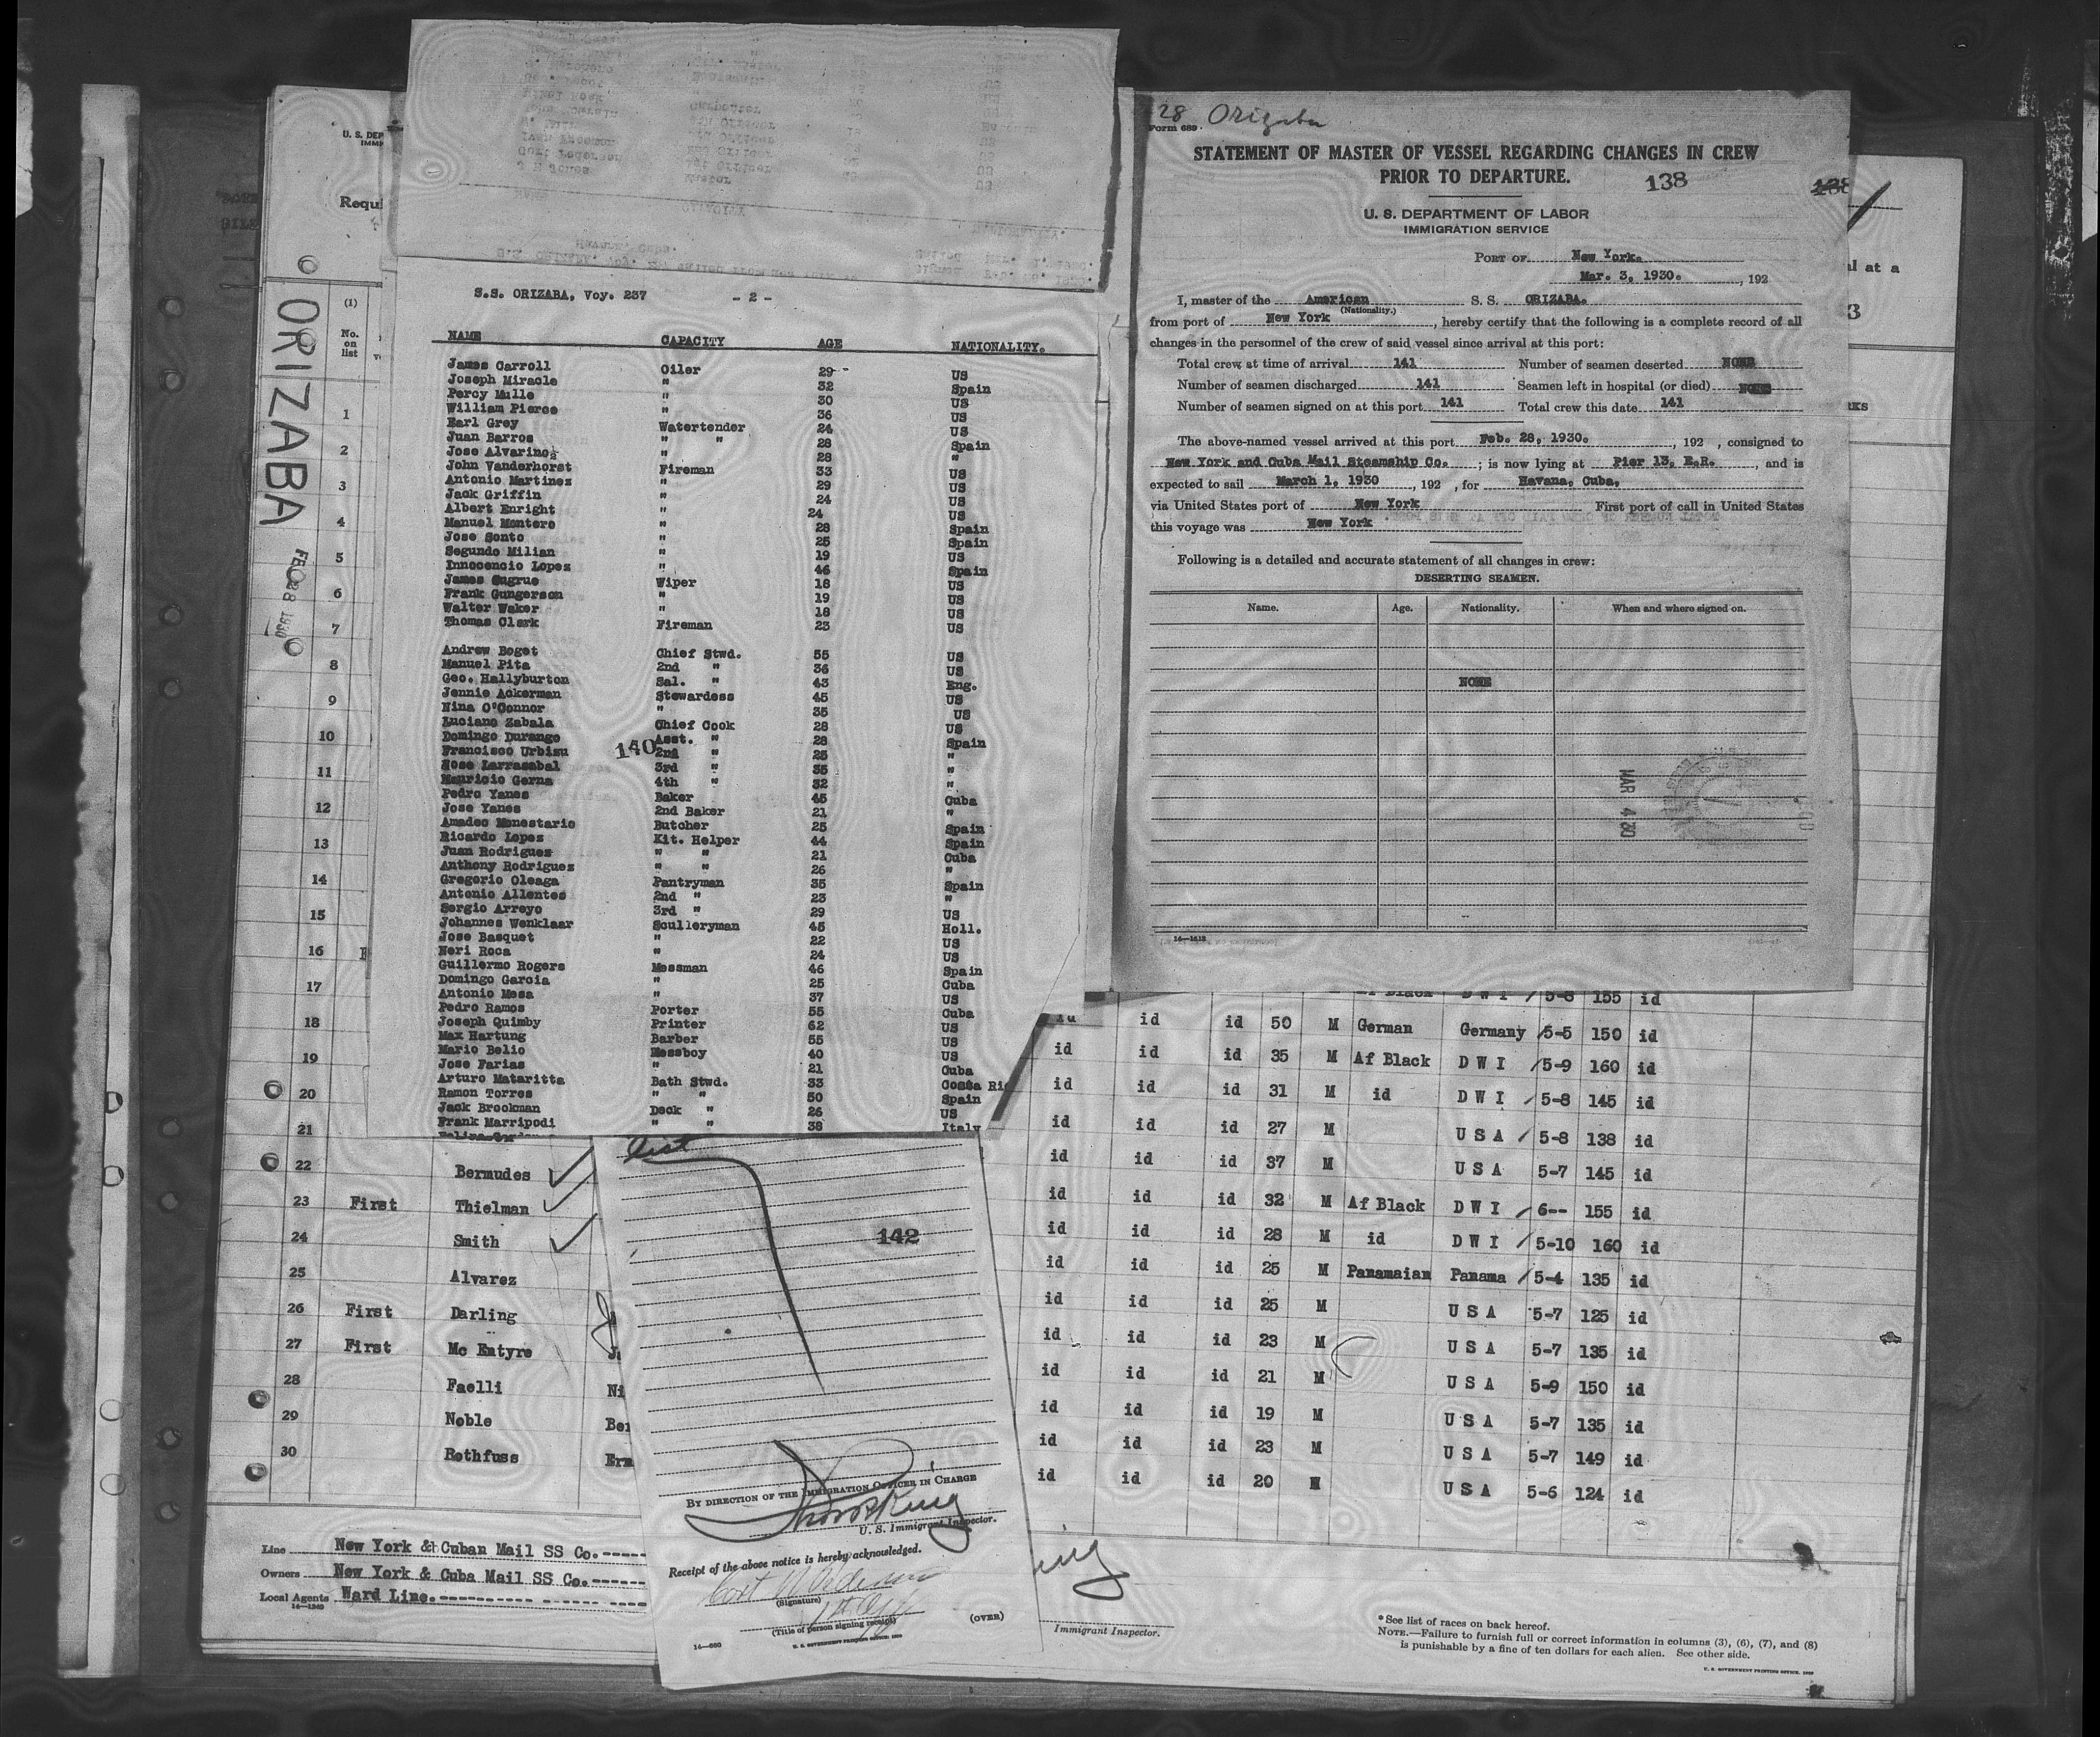 U. S. DEP
IMMI
Requi
ORIZABA
FEB 28 1930
(1)
No.
on
list
S.S. ORIZABA, Voy. 237 - 2 -
NAME CAPACITY AGE NATIONALITY.
James Carroll Oiler 29 US
Joseph Miracle " 32 Spain
Percy Mulle " 30 US
William Pierce " 36 US
Earl Grey Watertender 24 US
Juan Barros " " 28 Spain
Jose Alvarinos " 28 "
John Vanderhorst Fireman 33 US
Antonio Martinez " 29 US
Jack Griffin " 24 US
Albert Enright " 24 US
Manuel Montero " 28 Spain
Jose Sonto " 25 Spain
Segundo Milian " 19 US
Innocencio Lopez " 46 Spain
James Sugrue Wiper 18 US
Frank Gungerson " 19 US
Walter Waker " 18 US
Thomas Clark Fireman 23 US
Andrew Boget Chief Stwd. 55 US
Manuel Pita 2nd " 36 US
Geo. Hallyburton Sal. " 43 Eng.
Jennie Ackerman Stewardess 45 US
Nina O'Connor " 35 US
Luciano Zabala Chief Cook 28 US
Domingo Durango Asst. " 28 Spain
Francisco Urbisu 140 2nd " 25 "
Jose Larrasabal 3rd " 35 "
Mauricio Gerna 4th " 32 "
Pedro Yanes Baker 45 Cuba
Jose Yanes 2nd Baker 21 "
Amadeo Monestario Butcher 25 Spain
Ricardo Lopez Kit. Helper 44 Spain
Juan Rodriguez " " 21 Cuba
Anthony Rodrigues " " 26 "
Gregorio Oleaga Pantryman 35 Spain
Antonio Allentes 2nd " 23 "
Sergio Arroyo 3rd " 29 US
Johannes Wenklaar Sculleryman 45 Holl.
Jose Basquet " 22 US
Neri Roca " 24 US
Guillermo Rogers Messman 46 Spain
Domingo Garcia " 25 Cuba
Antonio Mesa " 37 US
Pedro Ramos Porter 55 Cuba
Joseph Quimby Printer 62 US
Max Hartung Barber 55 US
Mario Belio Messboy 40 US
Jose Farias " 21 Cuba
Arturo Mataritta Bath Stwd. 33 Costa Ric
Ramon Torres " " 50 Spain
Jack Brookman Deck " 26 US
Frank Marripodi " " 38 Italy
28 Orizaba
Form 689
STATEMENT OF MASTER OF VESSEL REGARDING CHANGES IN CREW
PRIOR TO DEPARTURE. 138
138
U. S. DEPARTMENT OF LABOR
IMMIGRATION SERVICE
PORT OF New York.
Mar. 3, 1930. , 192
I, master of the American S. S. ORIZABA.
(Nationality.)
from port of New York , hereby certify that the following is a complete record of all
changes in the personnel of the crew of said vessel since arrival at this port:
Total crew at time of arrival 141 Number of seamen deserted NONE
Number of seamen discharged 141 Seamen left in hospital (or died) NONE
Number of seamen signed on at this port 141 Total crew this date 141
The above-named vessel arrived at this port Feb. 28, 1930. , 192 , consigned to
New York and Cuba Mail Steamship Co. ; is now lying at Pier 13, E.R. , and is
expected to sail March 1, 1930 , 192 , for Havana, Cuba,
via United States port of New York First port of call in United States
this voyage was New York
Following is a detailed and accurate statement of all changes in crew:
DESERTING SEAMEN.
Name. Age. Nationality. When and where signed on.
NONE
MAR 4 30
16—1618
l at a
3
RKS
1
2
3
4
5
6
7
8
9
10
11
12
13
14
15
16
17
18
19
20
21
22 Bermudes
23 First Thielman
24 Smith
25 Alvarez
26 First Darling
27 First Mc Entyre
28 Faelli Ni
29 Noble Ber
30 Rothfuss Erm
Af Black D W I 5-8 155 id
id id id 50 M German Germany 5-5 150 id
id id id 35 M Af Black D W I 5-9 160 id
id id id 31 M id D W I 5-8 145 id
id id id 27 M U S A 5-8 138 id
id id id 37 M U S A 5-7 145 id
id id id 32 M Af Black D W I 6-- 155 id
id id id 28 M id D W I 5-10 160 id
id id id 25 M Panamaian Panama 5-4 135 id
id id id 25 M U S A 5-7 125 id
id id id 23 M U S A 5-7 135 id
id id id 21 M U S A 5-9 150 id
id id id 19 M U S A 5-7 135 id
id id id 23 M U S A 5-7 149 id
id id id 20 M U S A 5-6 124 id
list
142
BY DIRECTION OF THE IMMIGRATION OFFICER IN CHARGE
U. S. Immigrant Inspector.
Receipt of the above notice is hereby acknowledged.
(Signature)
(Title of person signing receipt)
(OVER)
14—660 U. S. GOVERNMENT PRINTING OFFICE: 1929
Line New York & Cuban Mail SS Co.
Owners New York & Cuba Mail SS Co.
Local Agents Ward Line.
14—1240
Immigrant Inspector.
* See list of races on back hereof.
NOTE.—Failure to furnish full or correct information in columns (3), (6), (7), and (8)
is punishable by a fine of ten dollars for each alien. See other side.
U. S. GOVERNMENT PRINTING OFFICE: 1929